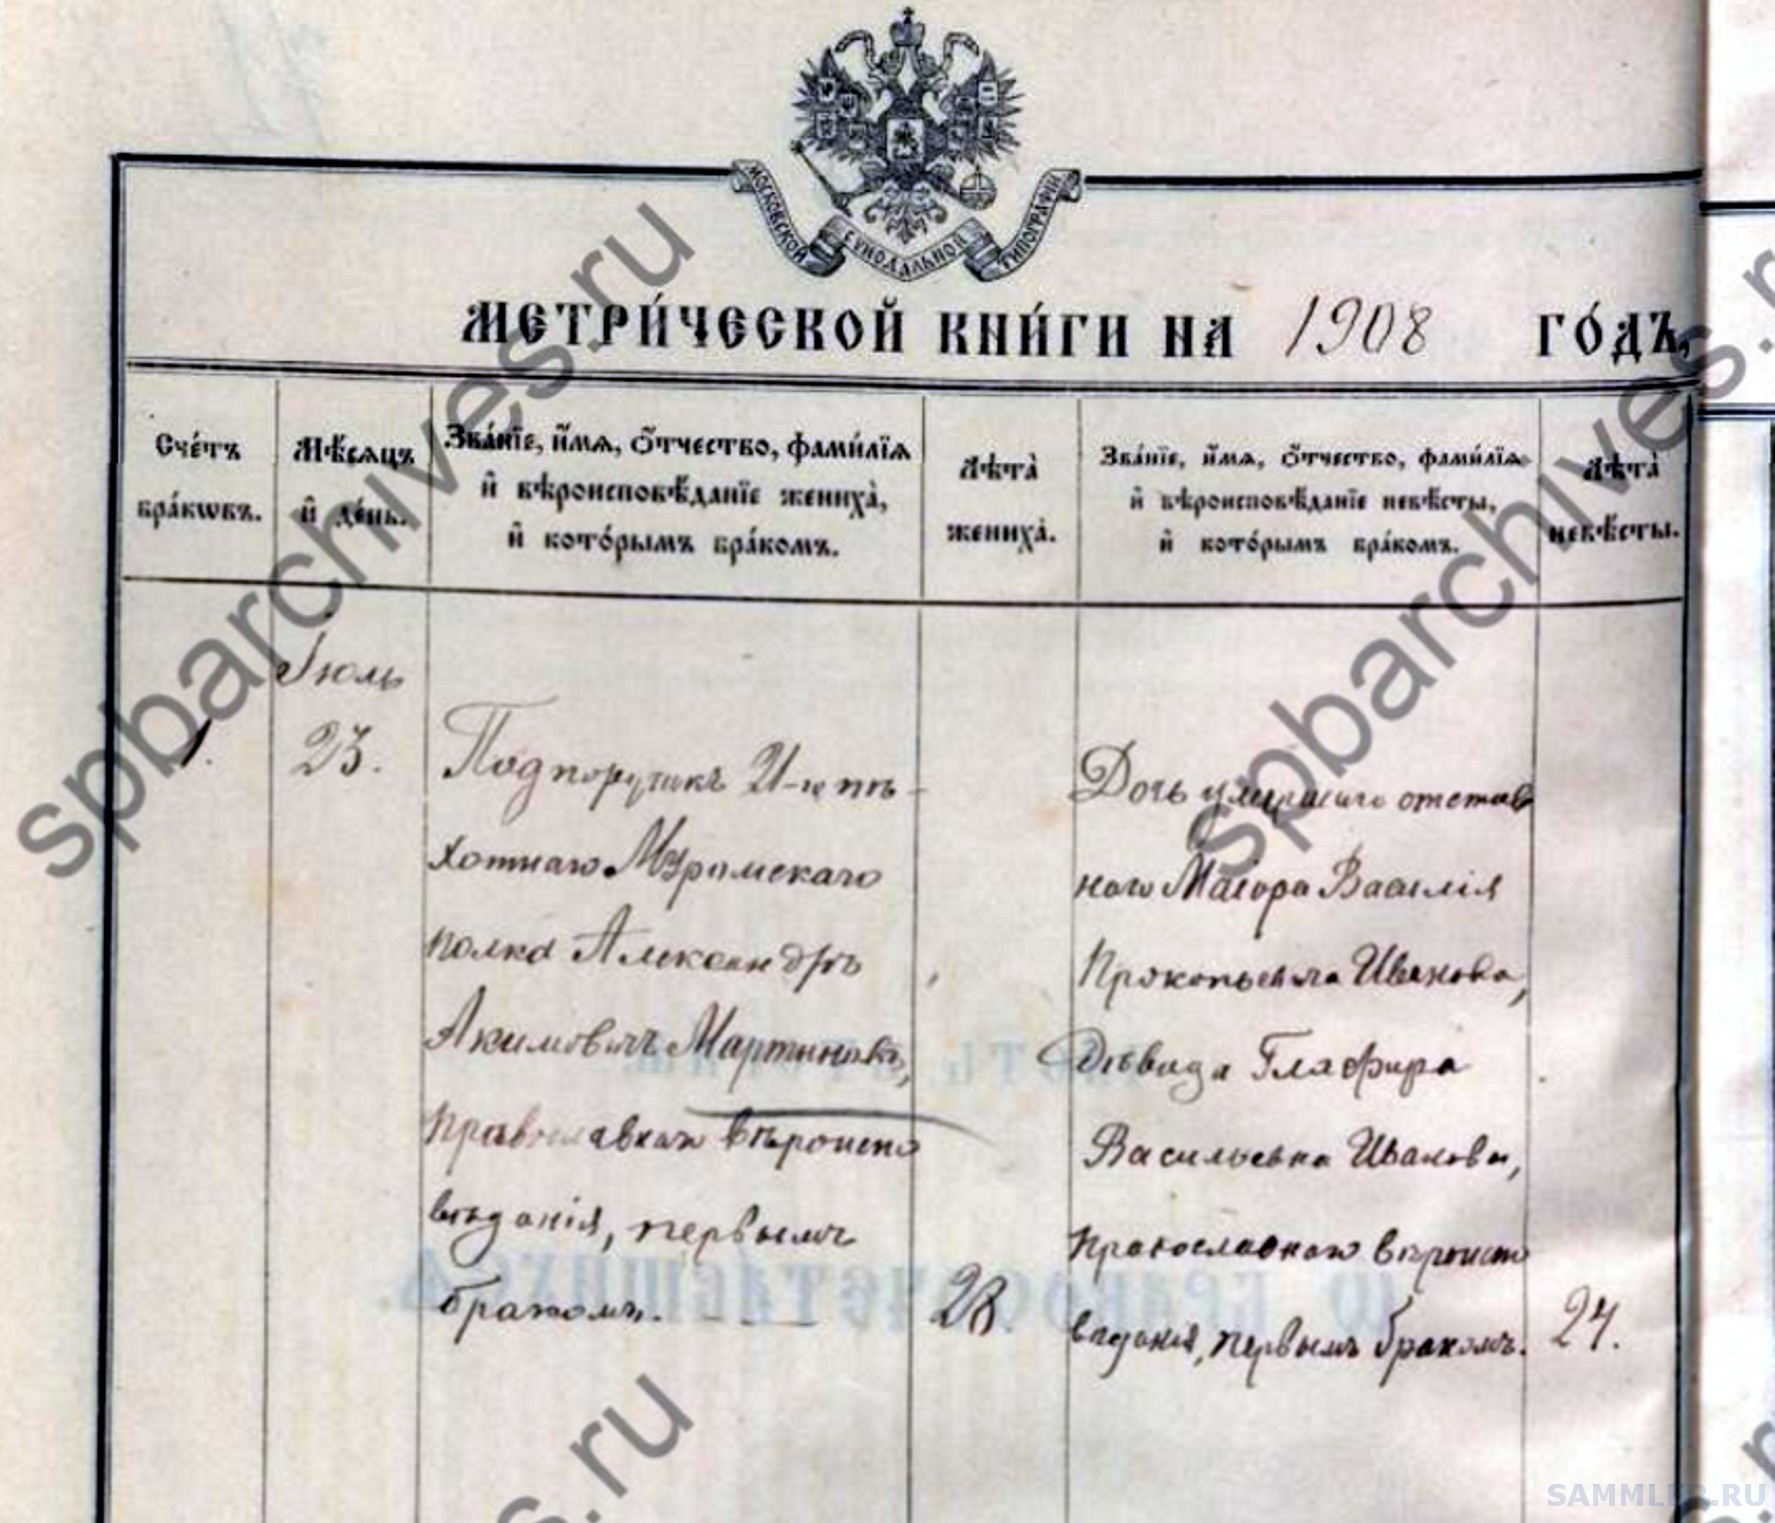 МОСКОВСКОЙ СѴНОДАЛЬНОЙ ТИПОГРАФІИ
МЕТРИ́ЧЕСКОЙ КНИ́ГИ НА 1908 ГО́ДЪ,
Сче́тъ
бра́кѡвъ.
Мѣ́сѧцъ
и҆ де́нь.
Зва́нїе, и҆́мѧ, ѻ҆́тчество, фами́лїѧ
и҆ вѣроисповѣ́данїе жениха̀,
и҆ кото́рымъ бра́комъ.
Лѣта̀
жениха̀.
Зва́нїе, и҆́мѧ, ѻ҆́тчество, фами́лїѧ
и҆ вѣроисповѣ́данїе невѣ́сты,
и҆ кото́рымъ бра́комъ.
Лѣта̀
невѣ́сты.
1.
Іюль
23.
Подпоручикъ 21-го пѣ-
хотнаго Муромскаго
полка Александръ
Акимовичъ Мартыновъ,
православнаго вѣроиспо
вѣданія, первымъ
бракомъ.
28
Дочь умершаго отстав
ного Маіора Василія
Прокопьевича Иванова,
дѣвица Глафира
Васильевна Иванова,
православнаго вѣроиспо
вѣданія, первымъ бракомъ.
24.
spbarchives.ru
spbarchives.ru
SAMMLER.RU